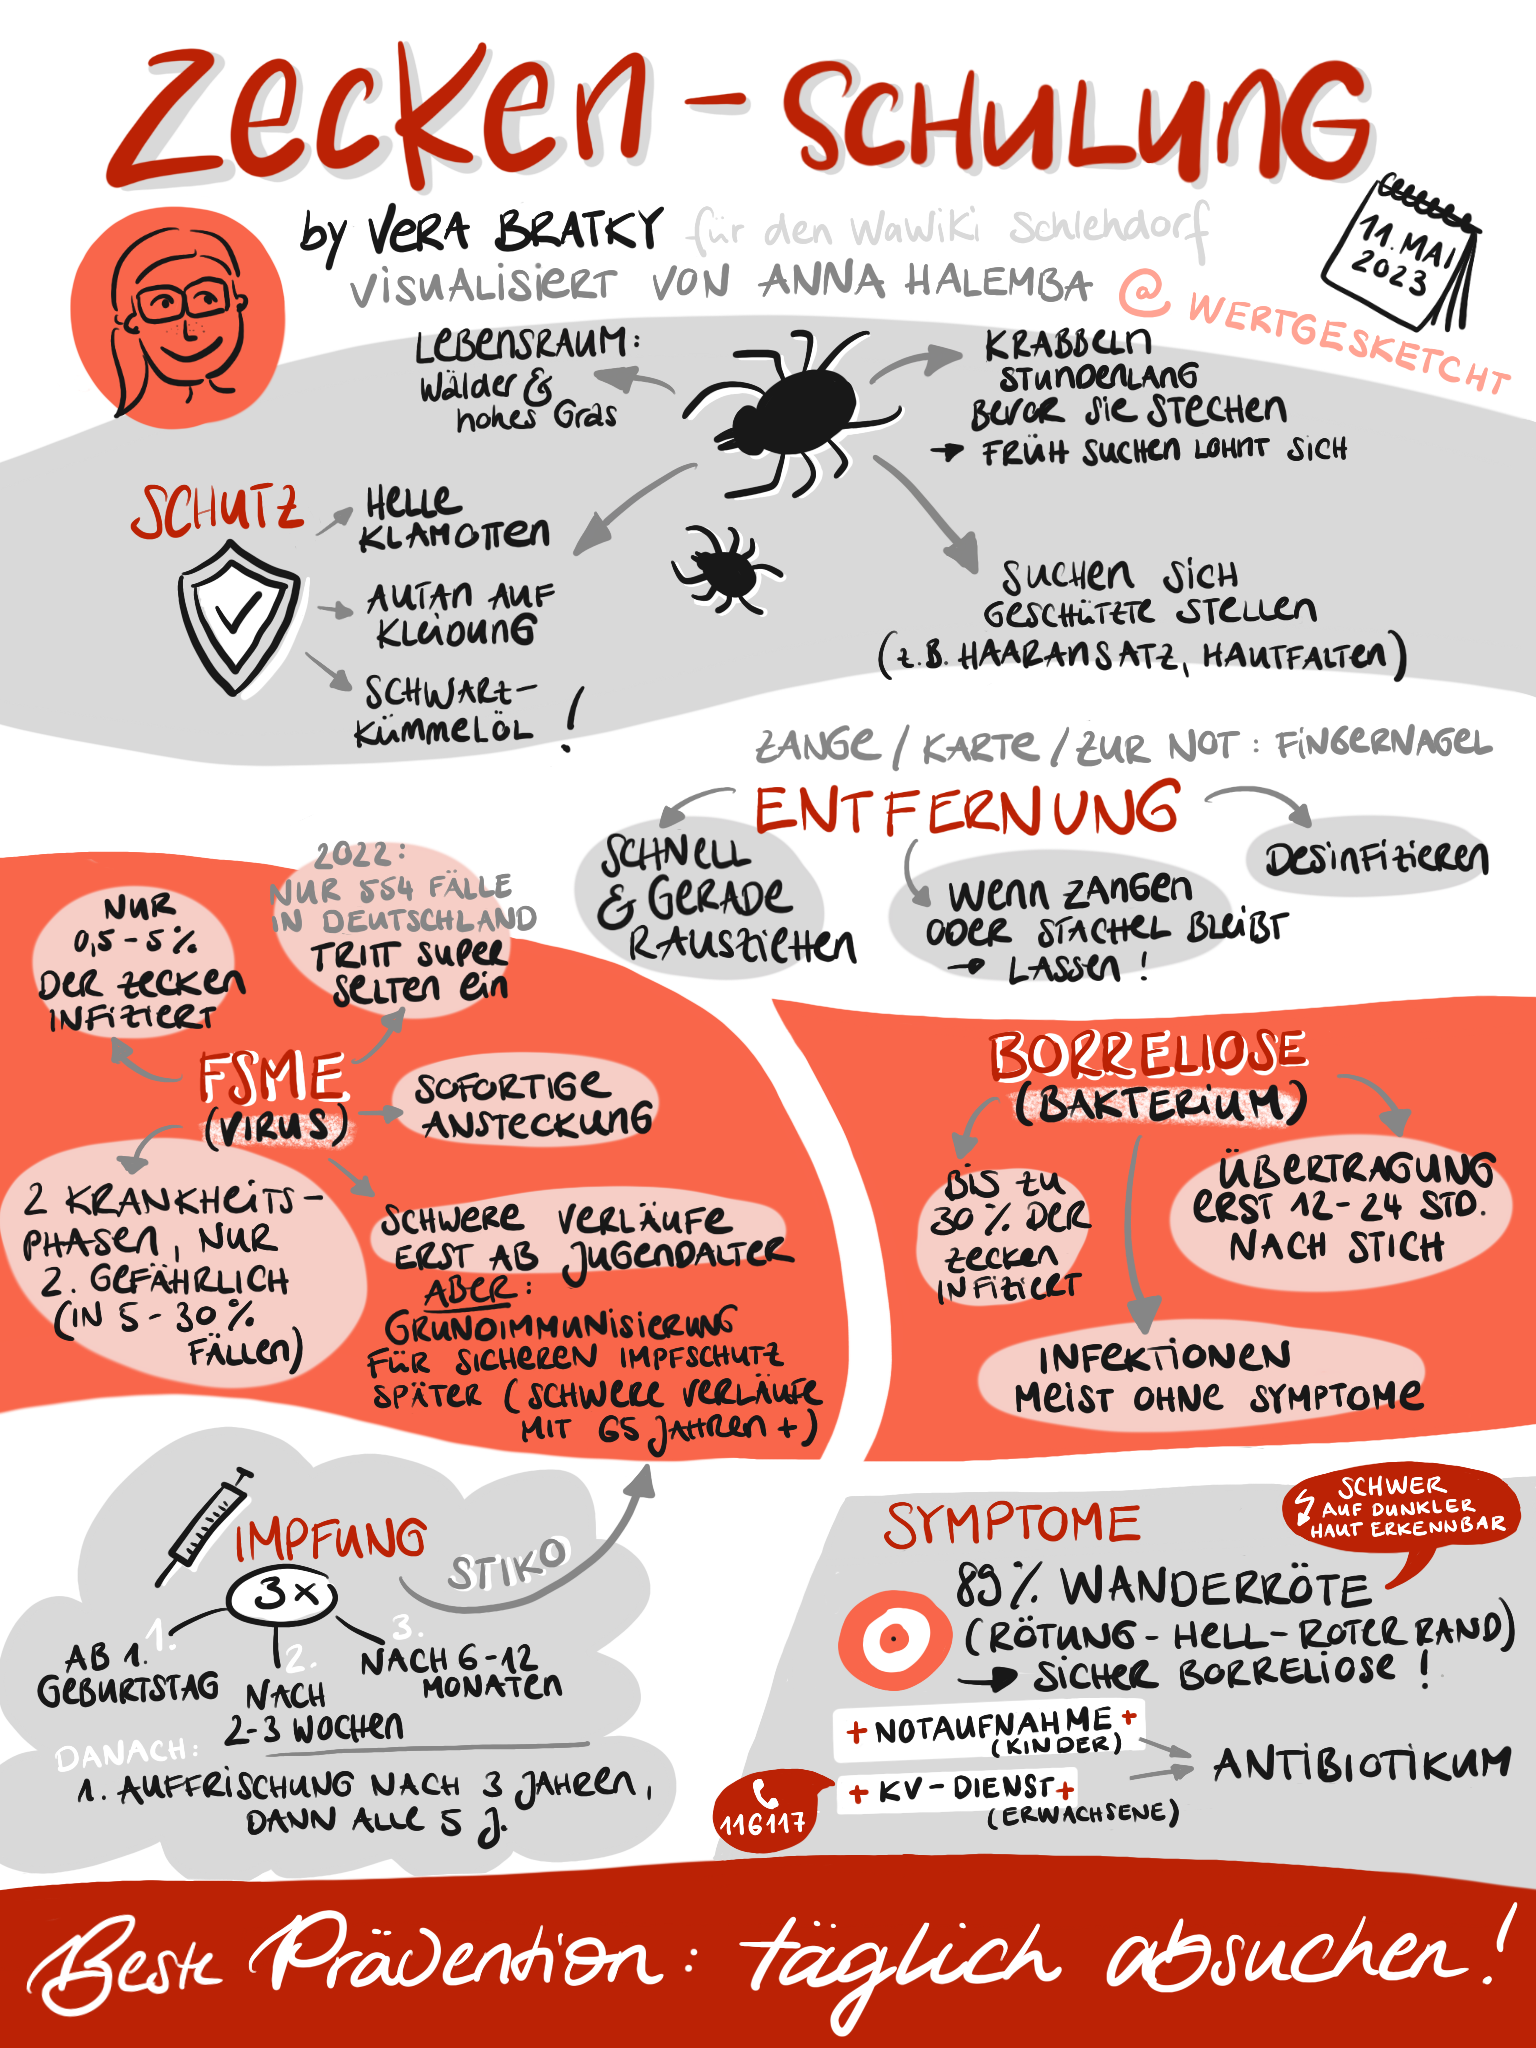 Zecken - Schulung
by Vera Bratky für den WaWiKi Schlehdorf
visualisiert von Anna Halemba @ wertgesketcht
11. Mai
2023
Lebensraum:
Wälder &
hohes Gras
Krabbeln
stundenlang
bevor sie stechen
→ Früh suchen lohnt sich
Schutz
Helle
Klamotten
Autan auf
Kleidung
Schwarz-
kümmelöl !
Suchen sich
geschützte Stellen
(z.B. Haaransatz, Hautfalten)
Zange / Karte / zur Not: Fingernagel
Entfernung
Schnell
& gerade
rausziehen
Wenn Zangen
oder Stachel bleibt
→ lassen !
Desinfizieren
Nur
0,5 - 5 %
der Zecken
infiziert
2022:
nur 554 Fälle
in Deutschland
Tritt super
selten ein
FSME
(Virus)
Sofortige
Ansteckung
2 Krankheits-
phasen, nur
2. gefährlich
(in 5 - 30 %
Fällen)
Schwere Verläufe
erst ab Jugendalter
Aber:
Grundimmunisierung
für sicheren Impfschutz
später (schwere Verläufe
mit 65 Jahren +)
Borreliose
(Bakterium)
Bis zu
30 % der
Zecken
infiziert
Übertragung
erst 12 - 24 Std.
nach Stich
Infektionen
meist ohne Symptome
Impfung
STIKO
3 x
1.
Ab 1.
Geburtstag
2.
Nach
2-3 Wochen
3.
Nach 6-12
Monaten
Danach:
1. Auffrischung nach 3 Jahren,
dann alle 5 J.
Symptome
Schwer
auf dunkler
Haut erkennbar
89 % Wanderröte
(Rötung - hell - roter Rand)
→ sicher Borreliose !
+ Notaufnahme +
(Kinder)
+ KV - Dienst +
(Erwachsene)
116117
Antibiotikum
Beste Prävention: täglich absuchen!